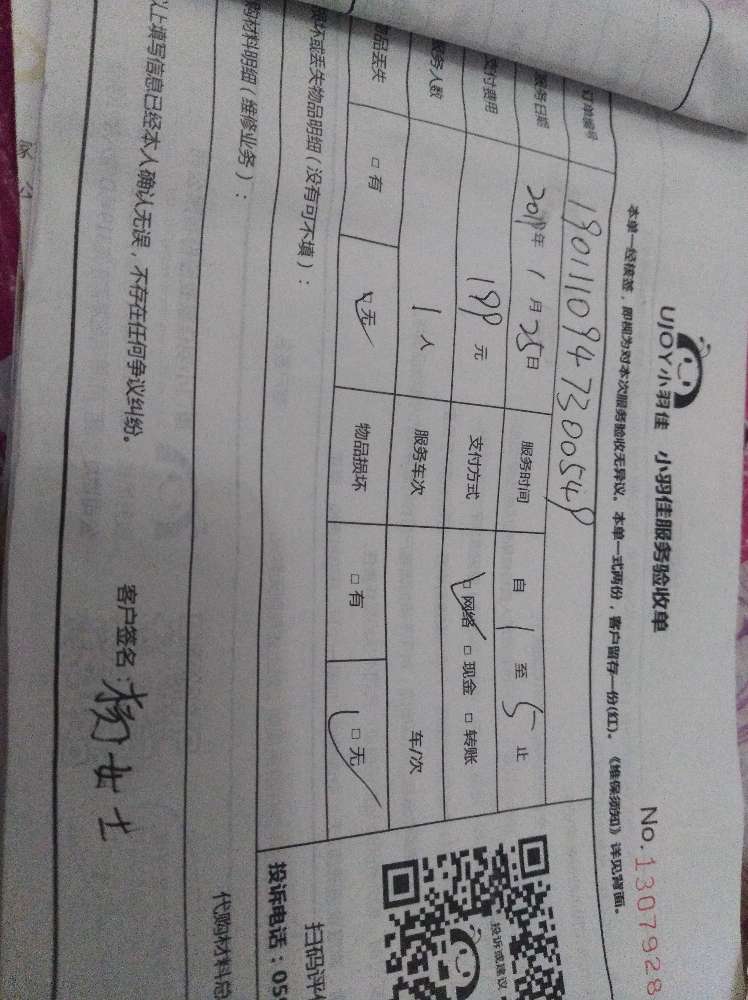 UJOY小羽佳 小羽佳服务验收单
No.1307928
本单一经核签，即视为对本次服务验收无异议。本单一式两份，客户留存一份(红)。《维保须知》详见背面。
订单编号 1901110947300549
服务日期 2019年1月25日 服务时间 自1至5止
支付费用 199元 支付方式 □网络 □现金 □转账
服务人数 1人 服务车次 车/次
物品丢失 □有 □无 物品损坏 □有 □无
损坏或丢失物品明细(没有可不填)：
购材料明细(维修业务)：
代购材料总
以上填写信息已经本人确认无误，不存在任何争议纠纷。
客户签名：杨女士
投诉或建议
扫码评
投诉电话：05